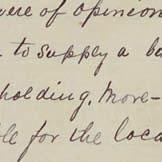 were of opinion
to supply a ba
holding. More-
le for the loca